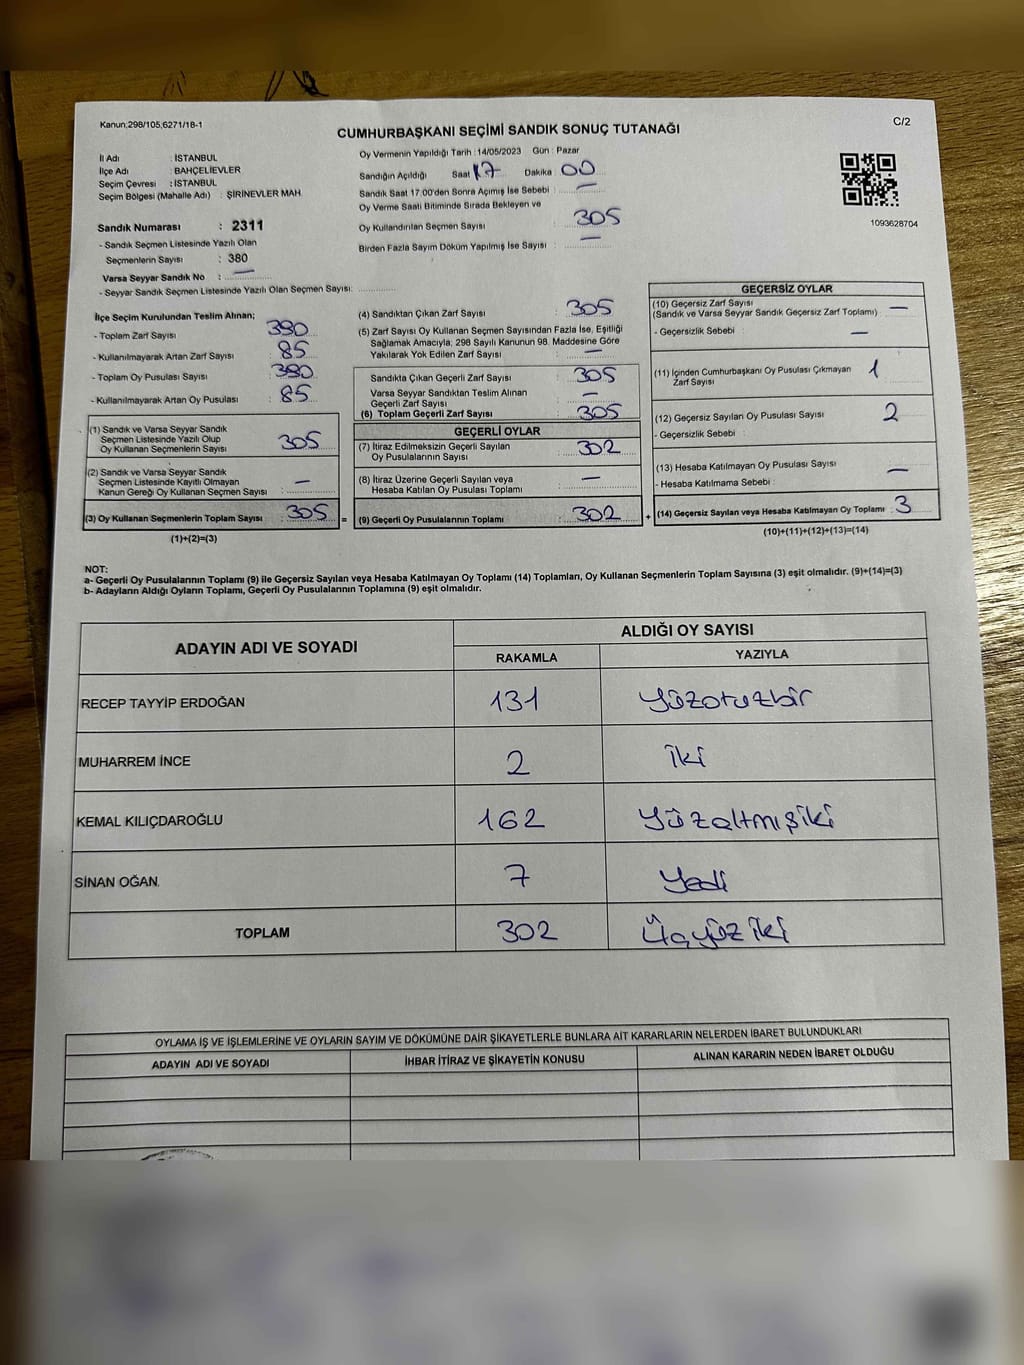 Kanun;298/105,6271/18-1
C/2
CUMHURBAŞKANI SEÇİMİ SANDIK SONUÇ TUTANAĞI
İl Adı : İSTANBUL
İlçe Adı : BAHÇELİEVLER
Seçim Çevresi : İSTANBUL
Seçim Bölgesi (Mahalle Adı) : ŞİRİNEVLER MAH.
Sandık Numarası : 2311
- Sandık Seçmen Listesinde Yazılı Olan
Seçmenlerin Sayısı : 380
Varsa Seyyar Sandık No : —
- Seyyar Sandık Seçmen Listesinde Yazılı Olan Seçmen Sayısı:
Oy Vermenin Yapıldığı Tarih :14/05/2023 Gün : Pazar
Sandığın Açıldığı Saat 17 Dakika 00
Sandık Saat 17.00'den Sonra Açımış İse Sebebi : —
Oy Verme Saati Bitiminde Sırada Bekleyen ve
Oy Kullandırılan Seçmen Sayısı : 305
Birden Fazla Sayım Döküm Yapılmış İse Sayısı : —
1093628704
İlçe Seçim Kurulundan Teslim Alınan;
- Toplam Zarf Sayısı : 390
- Kullanılmayarak Artan Zarf Sayısı : 85
- Toplam Oy Pusulası Sayısı : 390
- Kullanılmayarak Artan Oy Pusulası : 85
(1) Sandık ve Varsa Seyyar Sandık
Seçmen Listesinde Yazılı Olup
Oy Kullanan Seçmenlerin Sayısı : 305
(2) Sandık ve Varsa Seyyar Sandık
Seçmen Listesinde Kayıtlı Olmayan
Kanun Gereği Oy Kullanan Seçmen Sayısı : —
(3) Oy Kullanan Seçmenlerin Toplam Sayısı : 305
(1)+(2)=(3)
=
(4) Sandıktan Çıkan Zarf Sayısı : 305
(5) Zarf Sayısı Oy Kullanan Seçmen Sayısından Fazla İse, Eşitliği
Sağlamak Amacıyla; 298 Sayılı Kanunun 98. Maddesine Göre
Yakılarak Yok Edilen Zarf Sayısı : —
Sandıkta Çıkan Geçerli Zarf Sayısı : 305
Varsa Seyyar Sandıktan Teslim Alınan
Geçerli Zarf Sayısı : —
(6) Toplam Geçerli Zarf Sayısı : 305
GEÇERLİ OYLAR
(7) İtiraz Edilmeksizin Geçerli Sayılan
Oy Pusulalarının Sayısı : 302
(8) İtiraz Üzerine Geçerli Sayılan veya
Hesaba Katılan Oy Pusulası Toplamı : —
(9) Geçerli Oy Pusulalarının Toplamı : 302
+
GEÇERSİZ OYLAR
(10) Geçersiz Zarf Sayısı
(Sandık ve Varsa Seyyar Sandık Geçersiz Zarf Toplamı) : —
- Geçersizlik Sebebi : —
(11) İçinden Cumhurbaşkanı Oy Pusulası Çıkmayan
Zarf Sayısı : 1
(12) Geçersiz Sayılan Oy Pusulası Sayısı : 2
- Geçersizlik Sebebi :
(13) Hesaba Katılmayan Oy Pusulası Sayısı : —
- Hesaba Katılmama Sebebi :
(14) Geçersiz Sayılan veya Hesaba Katılmayan Oy Toplamı : 3
(10)+(11)+(12)+(13)=(14)
NOT:
a- Geçerli Oy Pusulalarının Toplamı (9) ile Geçersiz Sayılan veya Hesaba Katılmayan Oy Toplamı (14) Toplamları, Oy Kullanan Seçmenlerin Toplam Sayısına (3) eşit olmalıdır. (9)+(14)=(3)
b- Adayların Aldığı Oyların Toplamı, Geçerli Oy Pusulalarının Toplamına (9) eşit olmalıdır.
ADAYIN ADI VE SOYADI
ALDIĞI OY SAYISI
RAKAMLA YAZIYLA
RECEP TAYYİP ERDOĞAN 131 Yüzotuzbir
MUHARREM İNCE 2 iki
KEMAL KILIÇDAROĞLU 162 Yüzaltmışiki
SİNAN OĞAN 7 Yedi
TOPLAM 302 Üçyüziki
OYLAMA İŞ VE İŞLEMLERİNE VE OYLARIN SAYIM VE DÖKÜMÜNE DAİR ŞİKAYETLERLE BUNLARA AİT KARARLARIN NELERDEN İBARET BULUNDUKLARI
ADAYIN ADI VE SOYADI İHBAR İTİRAZ VE ŞİKAYETİN KONUSU ALINAN KARARIN NEDEN İBARET OLDUĞU